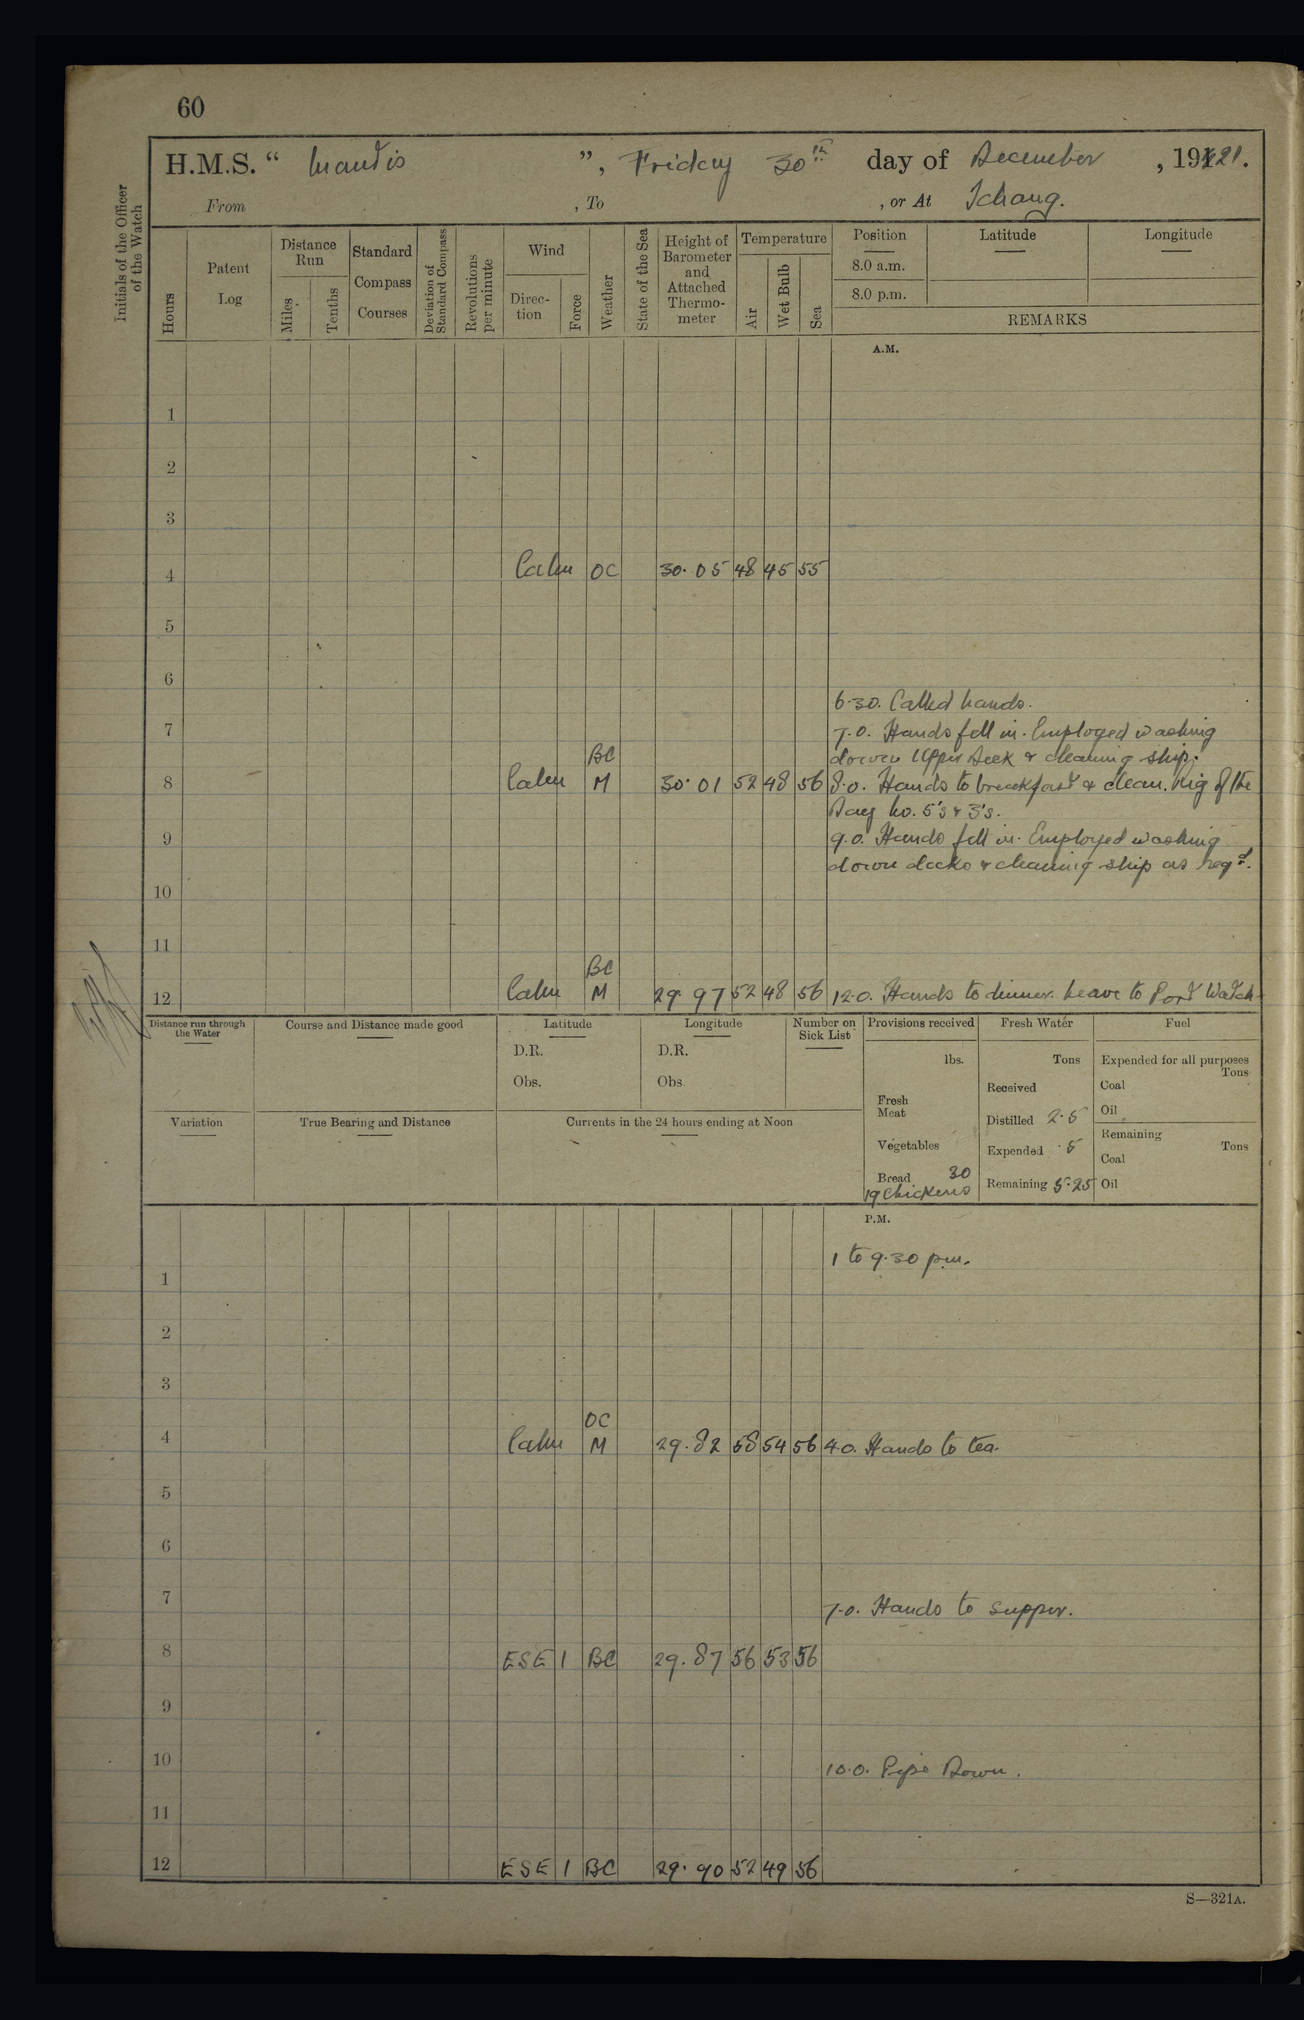 60
H.M.S. “ Mantis ”, Friday 30th day of December, 1921.
From , To , or At Ichang.
Initials of the Officer of the Watch
Hours
Patent Log
Distance Run
Miles
Tenths
Standard Compass Courses
Deviation of Standard Compass
Revolutions per minute
Wind
Direction
Force
Weather
State of the Sea
Height of Barometer and Attached Thermometer
Temperature
Air
Wet Bulb
Sea
Position
8.0 a.m.
8.0 p.m.
Latitude
Longitude
REMARKS
A.M.
1
2
3
4 Calm OC 30.05 48 45 55
5
6
6.30. Called hands.
7 7.0. Hands fell in. Employed washing
down Upper Deck & cleaning ship.
8 Calm BC M 30.01 52 48 56 8.0. Hands to breakfast & clean. Rig of the
Day No. 5's & 3's.
9 9.0. Hands fell in. Employed washing
down decks & cleaning ship as req^d.
10
11
12 Calm BC M 29.97 52 48 56 12.0. Hands to dinner. Leave to Port Watch
Distance run through the Water
Course and Distance made good
Latitude
D.R.
Obs.
Longitude
D.R.
Obs.
Number on Sick List
Provisions received
lbs.
Fresh Meat
Vegetables
Bread 30
19 Chickens
Fresh Water
Tons
Received
Distilled 2.5
Expended .5
Remaining 5.25
Fuel
Expended for all purposes
Tons
Coal
Oil
Remaining
Tons
Coal
Oil
Variation
True Bearing and Distance
Currents in the 24 hours ending at Noon
P.M.
1 to 9.30 pm.
1
2
3
4 Calm OC M 29.82 58 54 56 4.0. Hands to tea.
5
6
7 7.0. Hands to supper.
8 ESE 1 BC 29.87 56 53 56
9
10 10.0. Pipe Down.
11
12 ESE 1 BC 29.90 52 49 56
S—321A.